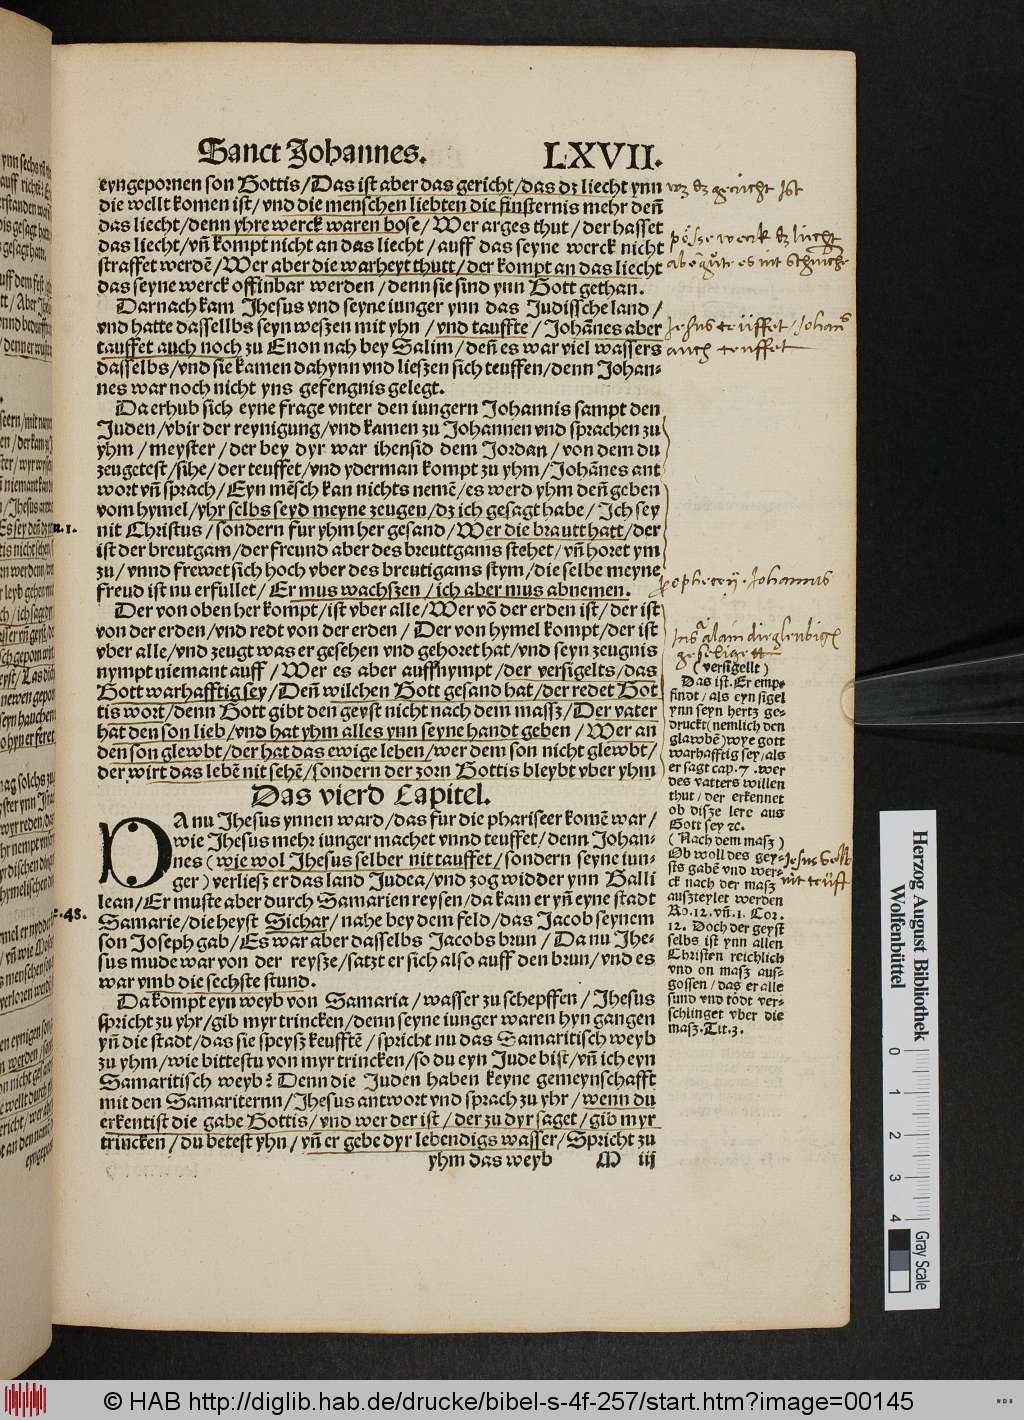 Sanct Johannes. LXVII.
eyngepornen son Gottis/Das ist aber das gericht/das dz liecht ynn
die wellt komen ist/vnd die menschen liebten die finsternis mehr deñ
das liecht/denn yhre werck waren bose/Wer arges thut/der hasset
das liecht/vñ kompt nicht an das liecht/auff das seyne werck nicht
straffet werdẽ/Wer aber die warheyt thutt/der kompt an das liecht
das seyne werck offinbar werden/denn sie sind ynn Gott gethan.
Darnach kam Jhesus vnd seyne iunger ynn das Judissche land/
vnd hatte dassellbs seyn weszen mit yhn/vnd tauffte/Johãnes aber
tauffet auch noch zu Enon nah bey Salim/deñ es war viel wassers
dasselbs/vnd sie kamen dahynn vnd lieszen sich teuffen/denn Johan-
nes war noch nicht yns gefengnis gelegt.
Da erhub sich eyne frage vnter den iungern Johannis sampt den
Juden/vbir der reynigung/vnd kamen zu Johannen vnd sprachen zu
yhm/meyster/der bey dyr war ihensid dem Jordan/von dem du
zeugetest/sihe/der teuffet/vnd yderman kompt zu yhm/Johãnes ant
wort vñ sprach/Eyn mẽsch kan nichts nemẽ/es werd yhm deñ geben
vom hymel/yhr selbs seyd meyne zeugen/dz ich gesagt habe/Ich sey
nit Christus/sondern fur yhm her gesand/Wer die brautt hatt/der
ist der breutgam/der freund aber des breuttgams stehet/vñ horet ym
zu/vnnd frewet sich hoch vber des breutigams stym/die selbe meyne
freud ist nu erfullet/Er mus wachszen/ich aber mus abnemen.
Der von oben her kompt/ist vber alle/Wer võ der erden ist/der ist
von der erden/vnd redt von der erden/Der von hymel kompt/der ist
vber alle/vnd zeugt was er gesehen vnd gehoret hat/vnd seyn zeugnis
nympt niemant auff/Wer es aber auffnympt/der versigelts/das
Gott warhafftig sey/Deñ wilchen Gott gesand hat/der redet Got
tis wort/denn Gott gibt den geyst nicht nach dem massz/Der vater
hat den son lieb/vnd hat yhm alles ynn seyne handt geben/Wer an
den son glewbt/der hat das ewige leben/wer dem son nicht glewbt/
der wirt das lebẽ nit sehẽ/sondern der zorn Gottis bleybt vber yhm
Das vierd Capitel.
DA nu Jhesus ynnen ward/das fur die phariseer komẽ war/
wie Jhesus mehr iunger machet vnnd teuffet/denn Johan-
nes (wie wol Jhesus selber nit tauffet/sondern seyne iun-
ger) verliesz er das land Judea/vnd zog widder ynn Galli
lean/Er muste aber durch Samarien reysen/da kam er yñ eyne stadt
Samarie/die heyst Sichar/nahe bey dem feld/das Jacob seynem
son Joseph gab/Es war aber dasselbs Jacobs brun/Da nu Jhe-
sus mude war von der reysze/satzt er sich also auff den brun/vnd es
war vmb die sechste stund.
Da kompt eyn weyb von Samaria/wasser zu schepffen/Jhesus
spricht zu yhr/gib myr trincken/denn seyne iunger waren hyn gangen
yñ die stadt/das sie speysz keufftẽ/spricht nu das Samaritisch weyb
zu yhm/wie bittestu von myr trincken/so du eyn Jude bist/vñ ich eyn
Samaritisch weyb? Denn die Juden haben keyne gemeynschafft
mit den Samariternn/Jhesus antwort vnd sprach zu yhr/wenn du
erkentist die gabe Gottis/vnd wer der ist/der zu dyr saget/gib myr
trincken/du betest yhn/vñ er gebe dyr lebendigs wasser/Spricht zu
yhm das weyb M iij
Jesus teüffet/Johanes
auch teuffet
prophecey. Johannis
(versigellt)
Das ist. Er emp-
findt/als eyn sigel
ynn seyn hertz ge-
druckt/nemlich den
glawbẽ) wye gott
warhafftig sey/als
er sagt cap.7. wer
des vatters willen
thut/der erkennet
ob disze lere aus
Gott sey ꝛc.
(Nach dem masz)
Ob woll des gey-
sts gabẽ vnd wer-
ck nach der masz
auszteylet werden
Ro.12. vñ.1. Cor.
12. Doch der geyst
selbs ist ynn allen
Christen reichlich
vnd on masz aus-
gossen/das er alle
sund vnd tödt ver-
schlinget vber die
masz. Tit.3.
Jesus selb
nit teüft
Herzog August Bibliothek
Wolfenbüttel
0 1 2 3 4
Gray Scale
© HAB http://diglib.hab.de/drucke/bibel-s-4f-257/start.htm?image=00145